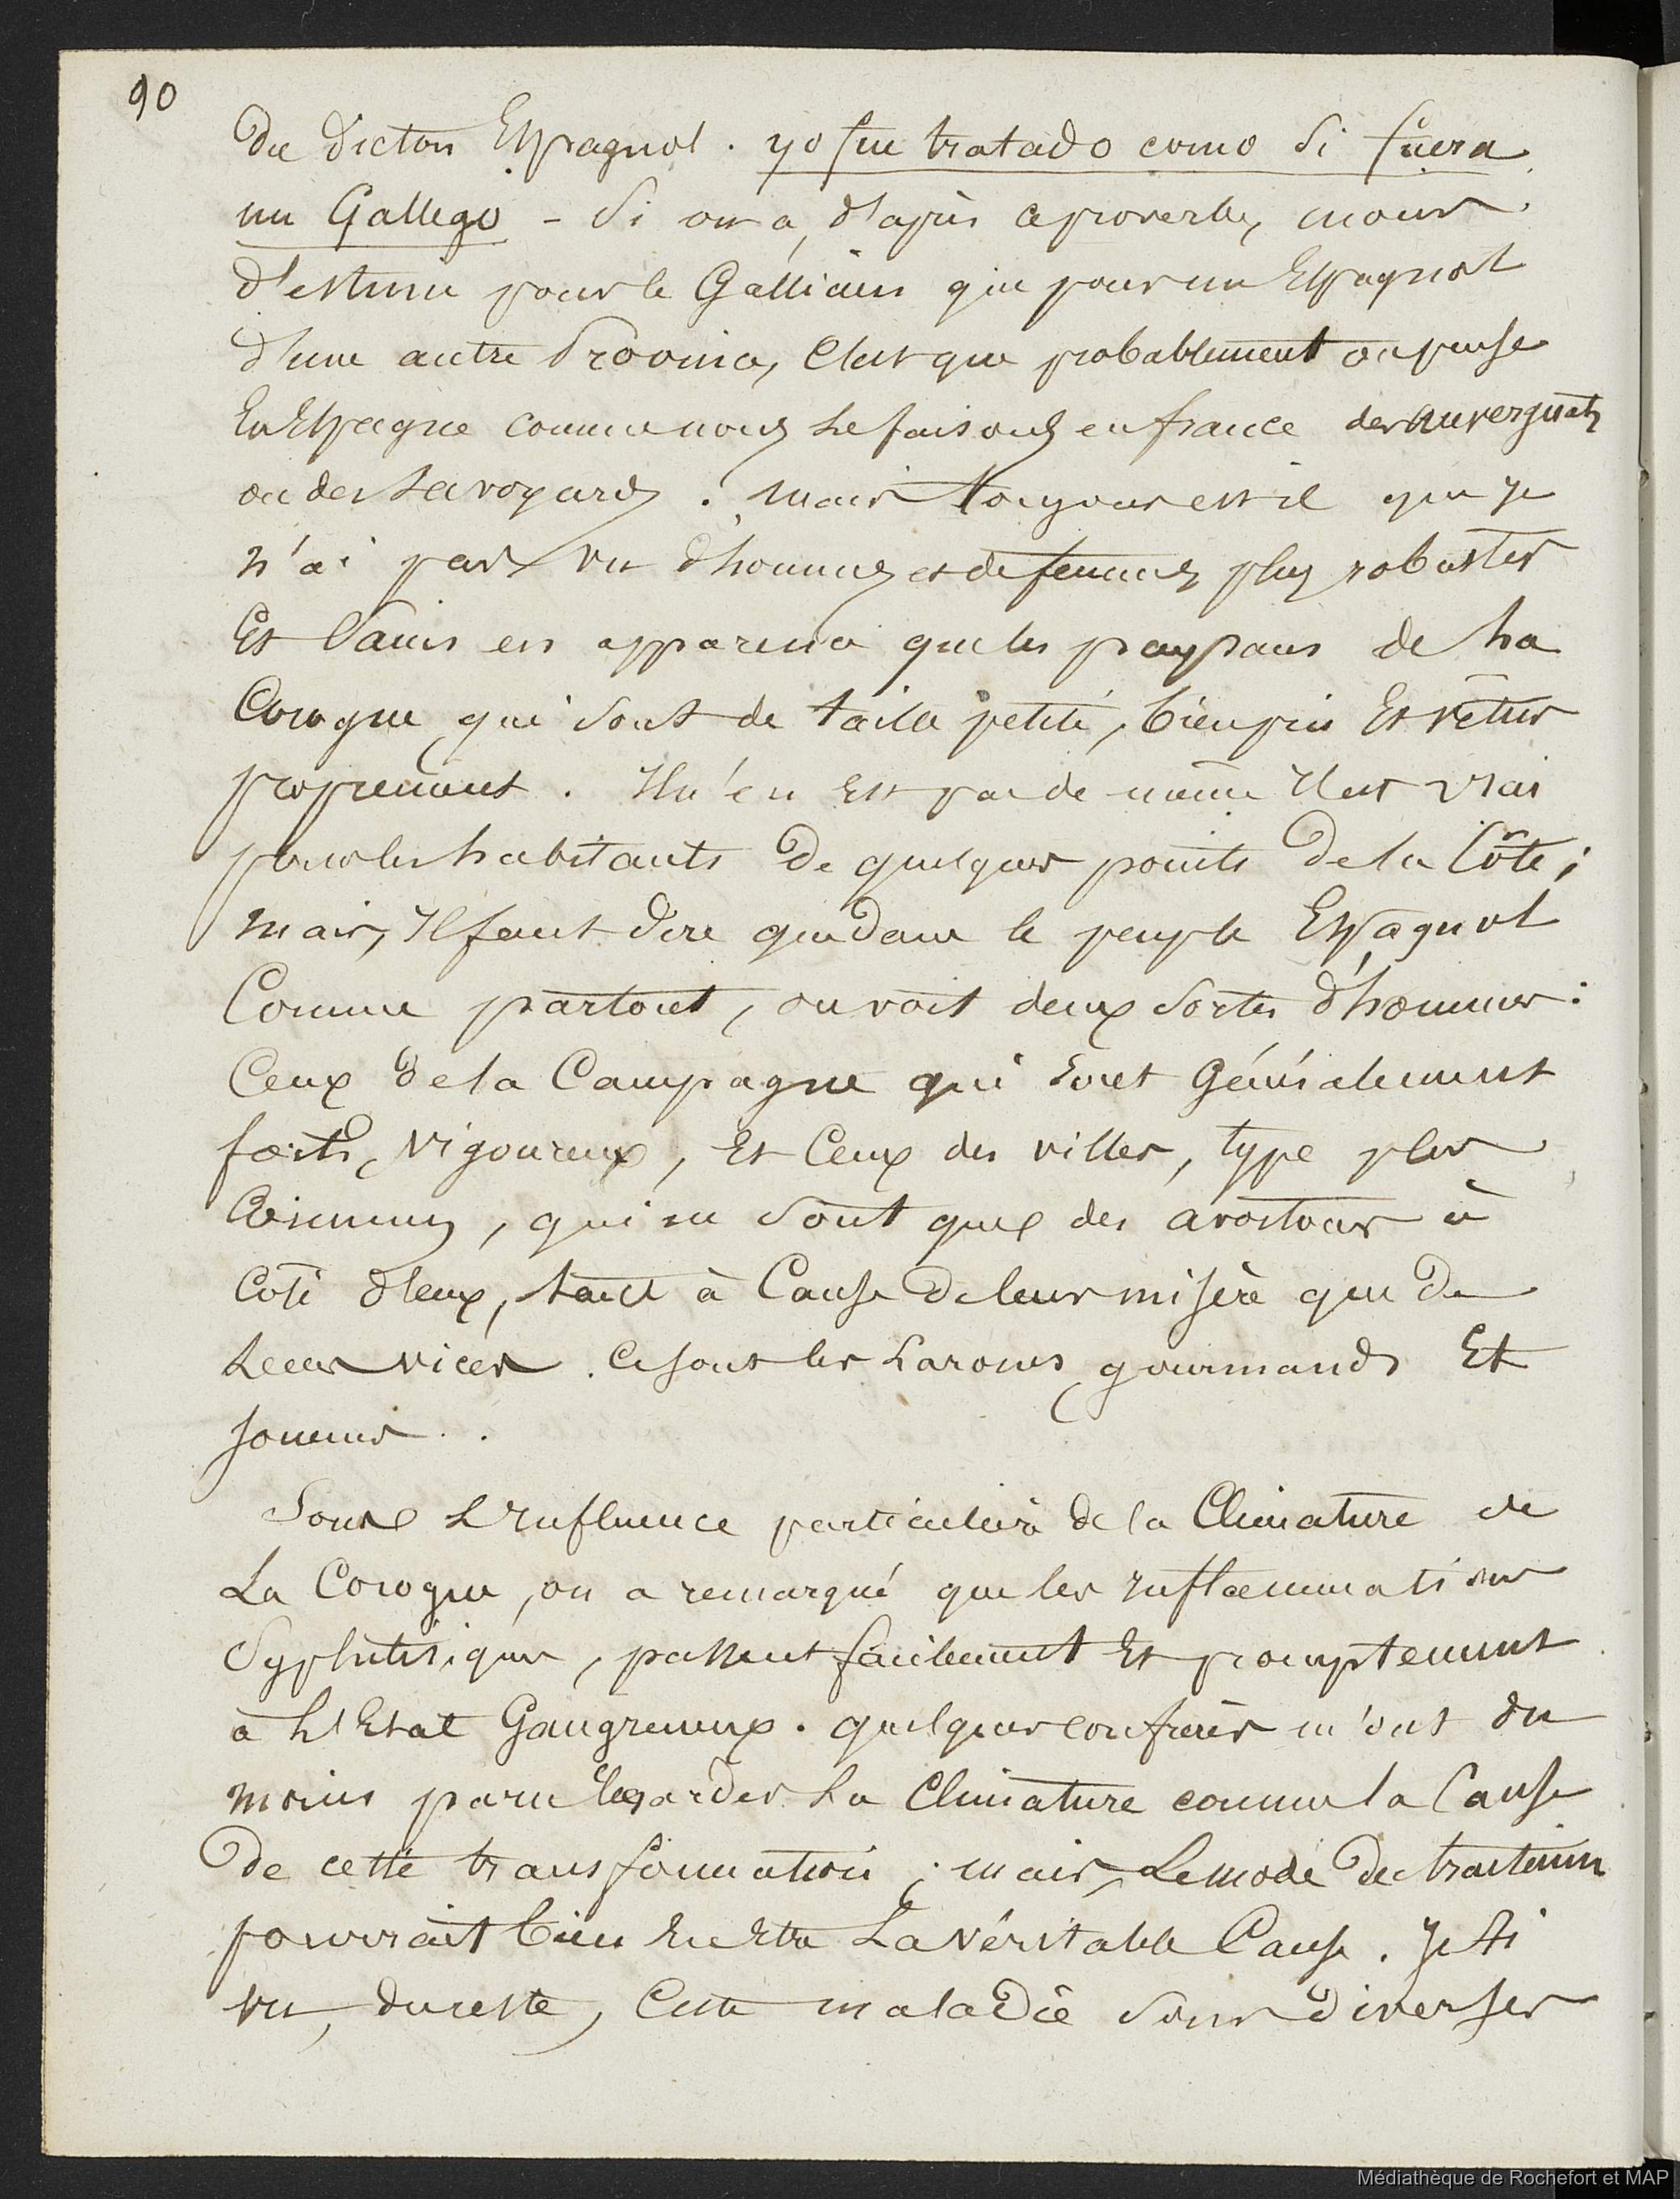 90
du dicton Espagnol . yo fue tratado como si fuera
un Gallego - Si on a, d'après ce proverbe, moins
d'estime pour le Gallicien que pour un Espagnol
d'une autre Province, C'est que probablement on pense
En Espagne comme nous le faisons en france des auvergnats
ou des Savoyards . Mais toujours est il que je
n'ai pas vu d'hommes et de femmes plus robustes
Et Sains en apparence que les paysans de La
Corogne qui sont de taille petite, bien pris Et vêtus
proprement . Il n'en Est pas de même Il est vrai
pour les habitants de quelques points de la Côte ;
mais, Il faut dire que dans le peuple Espagnol
Comme partout, on voit deux sortes d'hommes :
Ceux de la Campagne qui sont Généralement
forts, vigoureux, Et Ceux des villes, type plus
Commun, qui ne sont que des avortons à
Côté d'eux, tant à Cause de leur misère que de
Leurs vices . Ce sont les Larones gourmands Et
joueurs .
Sous L'Influence particulière de la Climature de
La Corogne, on a remarqué que les Inflammations
Syphilitiques, passent facilement Et promptement
à L'Etat Gangreneux . quelques confrères m'ont du
moins paru Regarder La Climature comme la Cause
de cette transformation ; mais, Le mode de traitement
pourrait bien En Etre La véritable Cause . Je L'ai
vu, du reste, Cette maladie sous diverses
Médiathèque de Rochefort et MAP